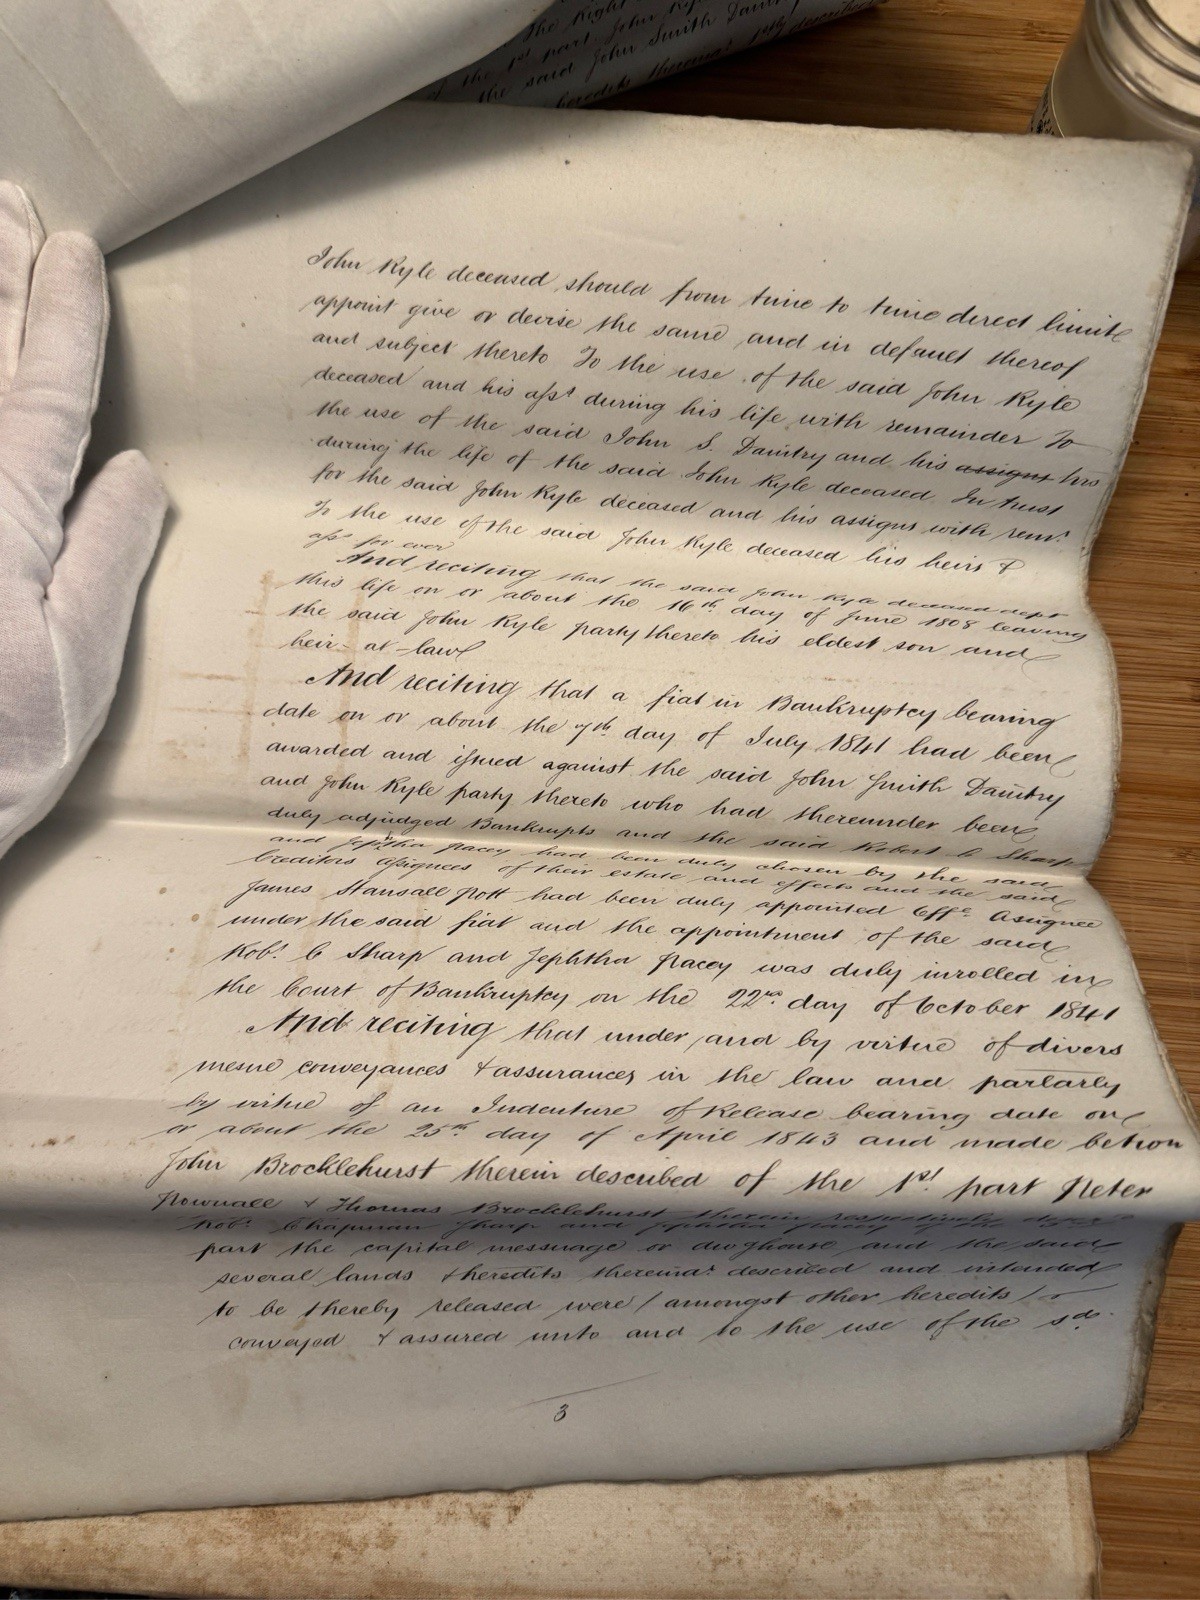 the Right
of the 1st part John Kyle
the said John Smith Daintry
heredits
John Kyle deceased should from time to time direct limit
appoint give or devise the same and in default thereof
and subject thereto To the use of the said John Kyle
deceased and his asss during his life with remainder To
the use of the said John S. Daintry and his assigns hrs
during the life of the said John Kyle deceased In trust
for the said John Kyle deceased and his assigns with remr
To the use of the said John Kyle deceased his heirs &
asss for ever
And reciting that the said John Kyle deceased dept
this life on or about the 16th day of June 1808 leaving
the said John Kyle party thereto his eldest son and
heir-at-law
And reciting that a fiat in Bankruptcy bearing
date on or about the 7th day of July 1841 had been
awarded and issued against the said John Smith Daintry
and John Kyle party thereto who had thereunder been
duly adjudged Bankrupts and the said Robert C Sharp
and Jephtha Pacey had been duly chosen by the said
Creditors Assignees of their estate and effects and the said
James Stansall Pott had been duly appointed Offl Assignee
under the said fiat and the appointment of the said
Robt C Sharp and Jephtha Pacey was duly inrolled in
the Court of Bankruptcy on the 22nd day of October 1841
And reciting that under and by virtue of divers
mesne conveyances & assurances in the law and parlarly
by virtue of an Indenture of Release bearing date on
or about the 25th day of April 1843 and made betwn
John Brocklehurst therein described of the 1st part Peter
Pownall & Thomas Brocklehurst therein respectively
Robt Chapman Sharp and Jephtha Pacey
part the capital messuage or dwghouse and the said
several lands & heredits thereinar described and intended
to be thereby released were (amongst other heredits)
conveyed & assured unto and to the use of the sd
3